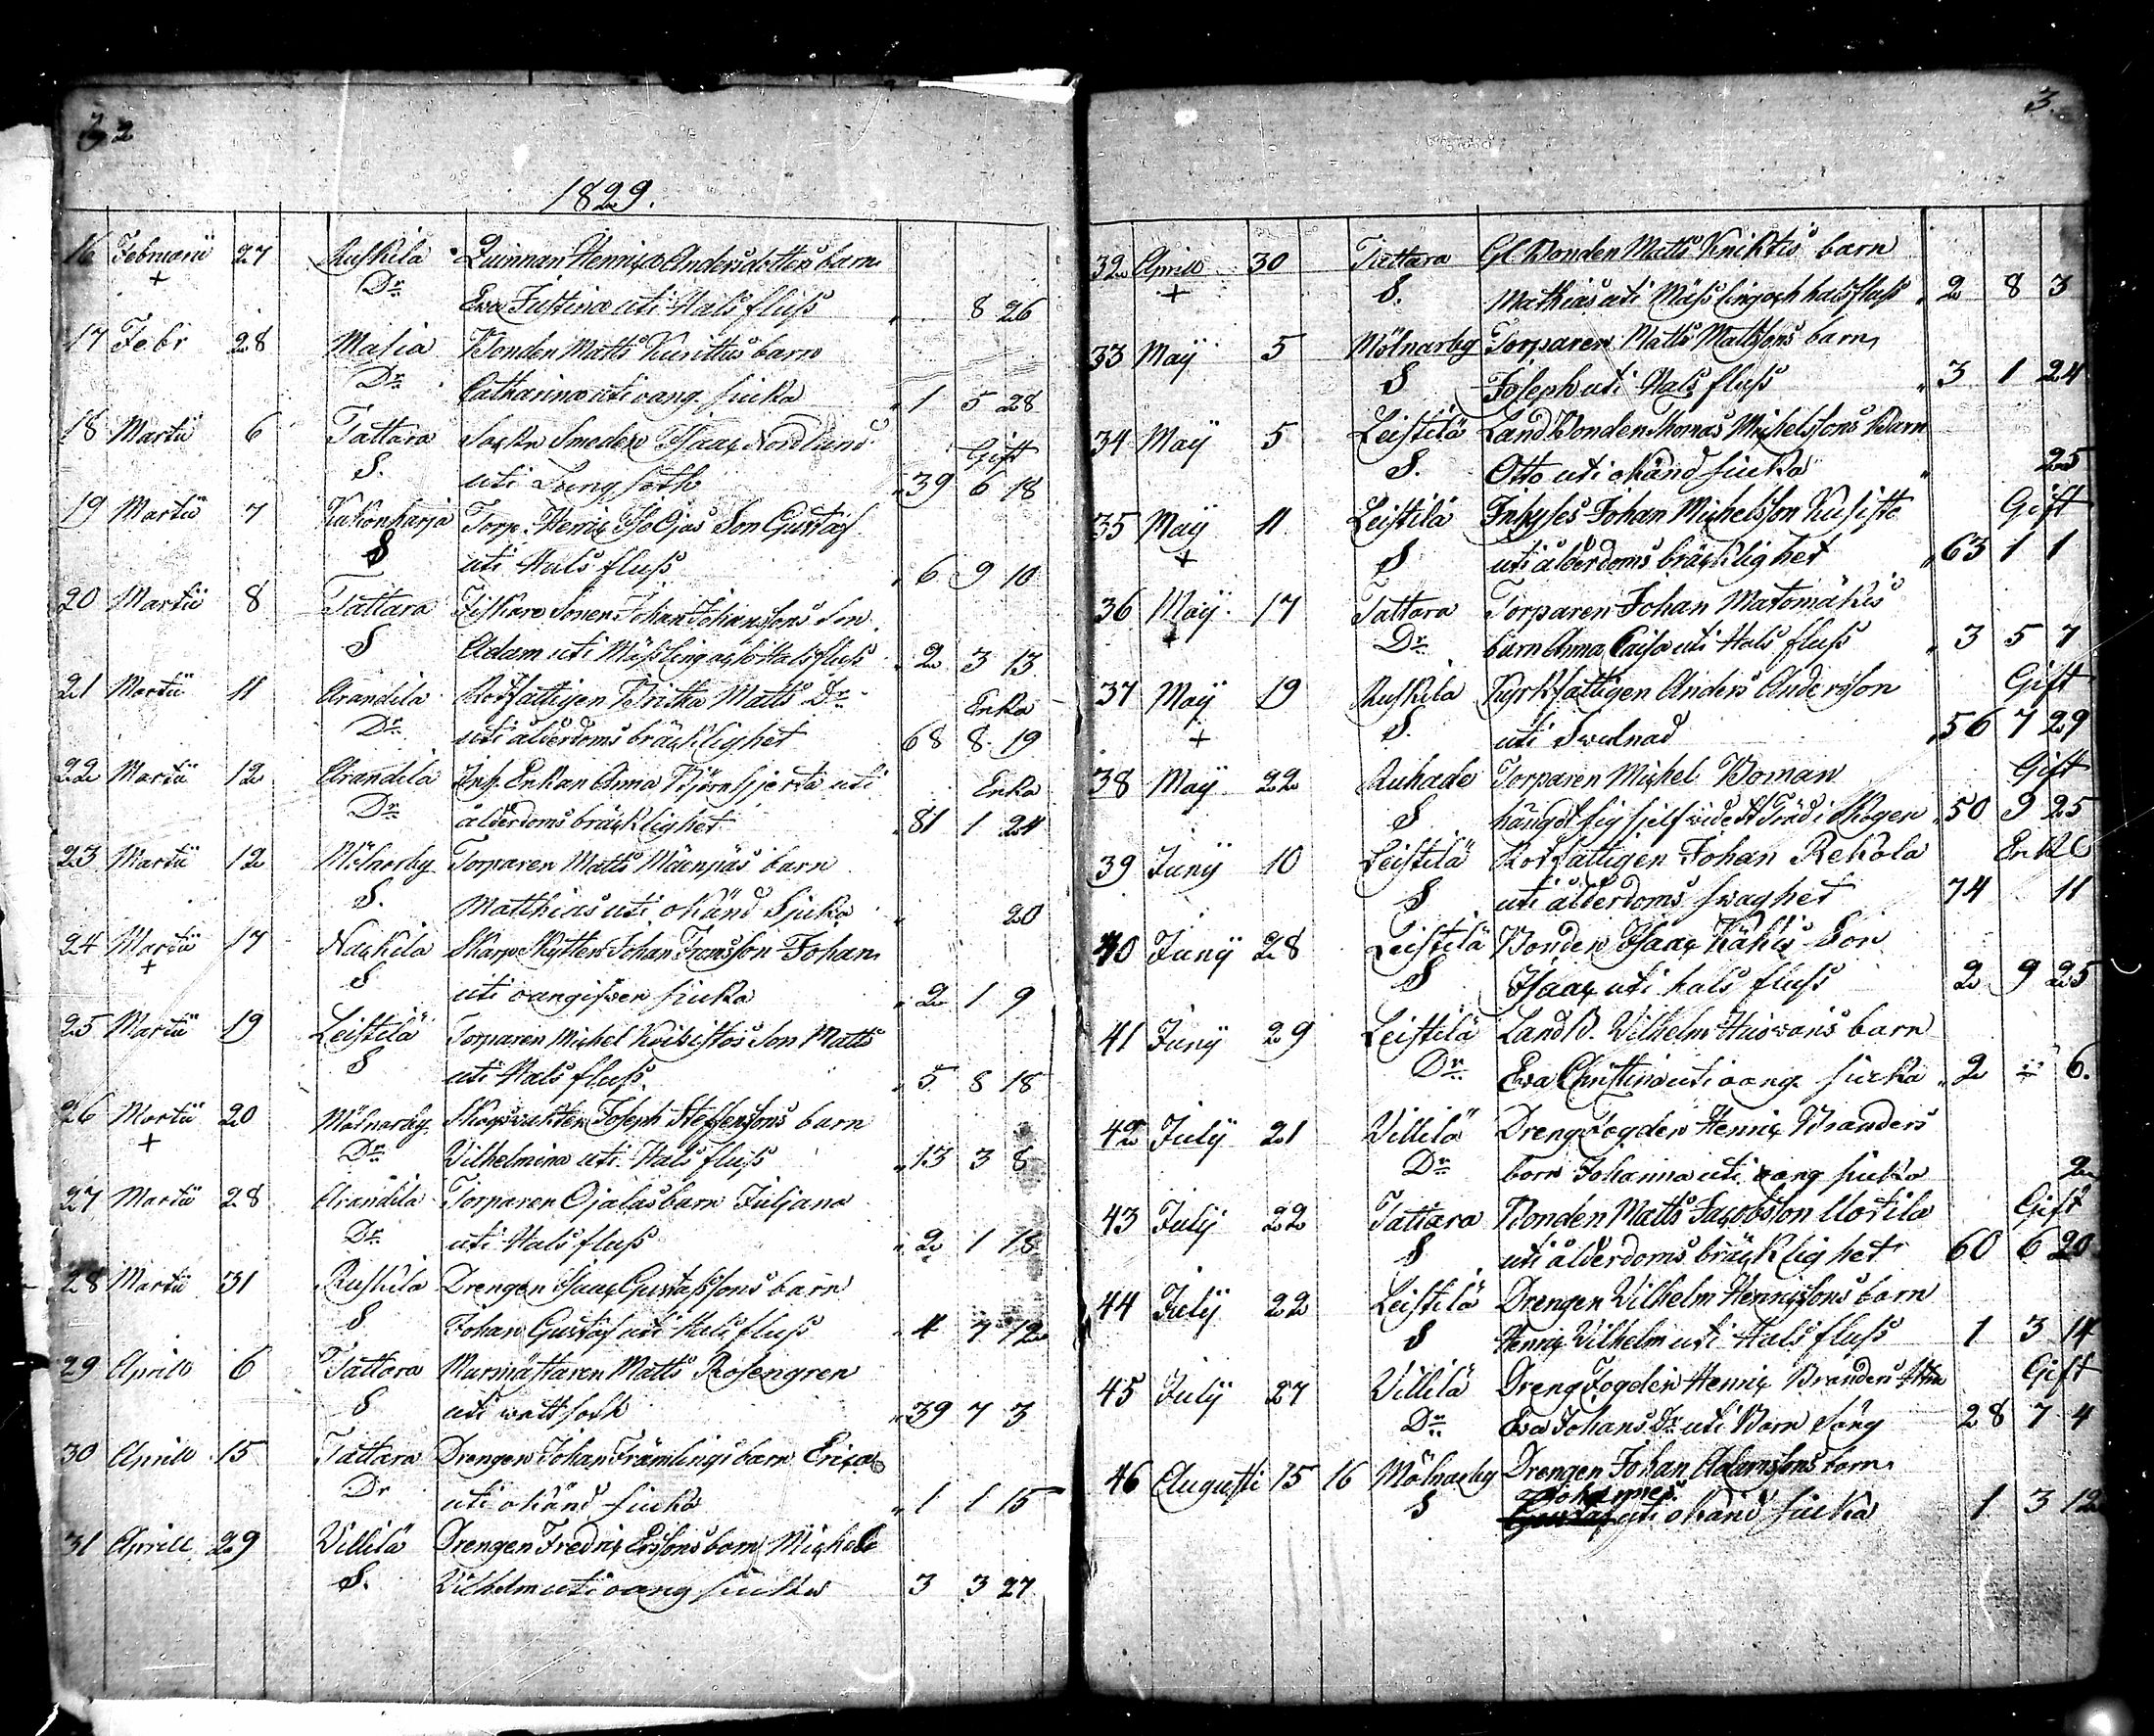 2
1829.
16 Februarii 27 Ruskila Quinnan Henrica Andersdotters barn
+ Dr Eva Justina uti Halsfluss " 8 26
17 Febr 28 Matia Bonden Matts Kurittus barn
Dr Catharina uti oang siuka " 1 5 28
18 Martii 6 Tattara Sockn Smeden Isaac Nordlund Gift
S. uti Lungsoth " 39 6 18
19 Martii 7 Kukonharja Torp. Henric Iso Ojas Son Gustaf
S uti Halsfluss " 6 9 10
20 Martii 8 Tattara Fiskare Sonen Johan Johanssons Son
S Adam uti Mässling och Halsfluss " 2 3 13
21 Martii 11 Arandila Rotfattigen Britta Matts Dr Enka
Dr uti ålderdoms bräcklighet 68 8 19
22 Martii 12 Arandila Inh. Enkan Anna Björnhjerta uti Enka
Dr ålderdoms bräcklighet " 81 1 24
23 Martii 12 Mölnarby Torparen Matts Mäenpäs barn
S. Matthias uti okänd Sjuka " 20
24 Martii 17 Nackila Skarp Skytten Johan Fromsson Johan
+ S uti oangifven siuka " 2 1 9
25 Martii 19 Leistilä Torparen Michel Koivistos Son Matts
S uti Halsfluss " 5 8 18
26 Martii 20 Mölnarby Skogvakten Joseph Steffenssons barn
+ Dr Vilhelmina uti Halsfluss " 13 3 8
27 Martii 28 Arandila Torparen Ojalas barn Juljana
Dr uti Halsfluss " 2 1 18
28 Martii 31 Ruskila Drengen Isaac Gustafssons barn
S Johan Gustaf uti Halsfluss " 4 7 12
29 Aprill 6 Tattara Murmästaren Matts Rosengren
S uti wattsoth " 39 7 3
30 Aprill 15 Tattara Drengen Johan Främlings barn Erica
Dr uti okänd siuka " 1 1 15
31 Aprill 29 Villilä Drengen Fredric Erssons barn Michel
S. Vilhelm uti oang siuka 3 3 27
3.
32 Aprill 30 Tattara Gl. Bonden Matts Knihtis barn
+ S. Mathias uti Mässling och halsfluss " 2 8 3
33 Maij 5 Mölnarby Torparen Matts Mattssons barn
S Joseph uti Halsfluss " 3 1 24
34 Maij 5 Leistilä Land Bonden Thomas Michelssons Barn
S. Otto uti okänd siuka " 25
35 Maij 11 Leistilä Inhyses Johan Michelsson Kusisto Gift
+ S uti ålderdoms bräcklighet " 63 1 1
36 Maij 17 Tattara Torparen Johan Matomäkis
+ Dr barn Anna Caisa uti Halsfluss " 3 5 7
37 Maij 19 Ruskila Kyrkfattigen Anders Andersson Gift
+ S. uti Svulnad " 56 7 29
38 Maij 22 Ruhade Torparen Michel Boman Gift
S hängdt sig sjelf wid ett Träd i Skogen " 50 9 25
39 Junij 10 Leistilä Rotfattigen Johan Rekola Enkl
S uti ålderdoms swaghet 74 11
40 Junij 28 Leistilä Bonden Isaac Kähkis Son
S Isaac uti halsfluss 2 9 25
41 Junij 29 Leistilä Land B. Vilhelm Huovaris barn
Dr Eva Christina uti oang siuka " 2 " 6.
42 Julij 21 Villilä Dreng Fogden Henric Branders
Dr barn Johanna uti oang siuka 2
43 Julij 22 Tattara Bonden Matts Jacobsson Uotila Gift
S uti ålderdoms bräcklighet 60 6 20
44 Julij 22 Leistilä Drengen Vilhelm Henricssons barn
S Henric Vilhelm uti Halsfluss 1 3 14
45 Julij 27 Villilä Dreng Fogden Henric Branders Hstru Gift
Dr Eva Johans Dr uti Barn Säng 28 7 4
46 Augusti 15 16 Mölnarby Drengen Johan Adamssons barn
Johannes
S Gustaf uti okänd siuka 1 3 12